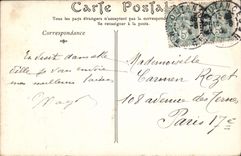 Carte Postale
Tous les pays étrangers n'acceptent pas la correspondance
Se renseigner à la poste
Correspondance
En visite dans cette
Ville je vous envoie
mes meilleurs
Mademoiselle
Carmen Rozet
108 avenue des Ternes
Paris 17e